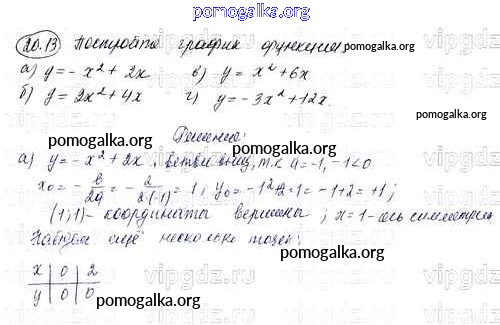 pomogalka.org
20.13 Постройте график функции
pomogalka.org
а) y = - x² + 2x в) y = x² + 6x
б) y = 2x² + 4x г) y = -3x² + 12x
pomogalka.org
vipgdz.ru
Решение:
pomogalka.org
а) y = - x² + 2x, ветви вниз, т.к a = -1, -1 < 0
x₀ = - в/2a = - 2/2·(-1) = 1; y₀ = -1² + 2·1 = -1 + 2 = +1;
pomogalka.org
(1;1) - координата вершины; x = 1 - ось симметрии
Найдём ещё несколько точек:
x | 0 | 2
y | 0 | 0
pomogalka.org
vipgdz.ru